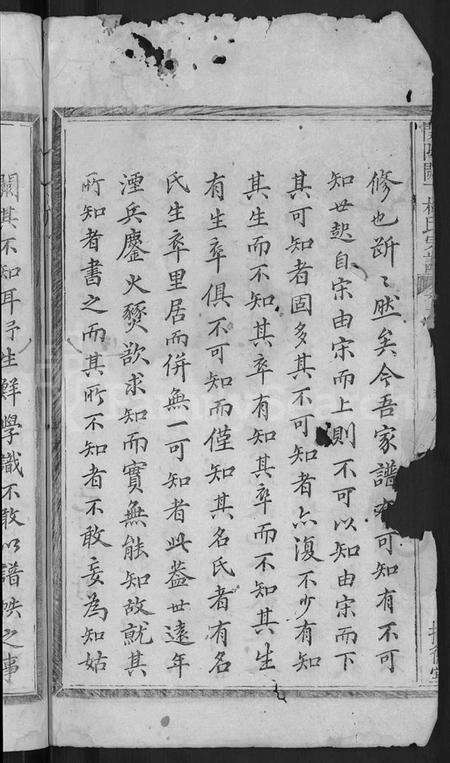 修也斷〻然矣今吾家譜可知有不可
知世起自宋由宋而上則不可以知由宋而下
其可知者固多其不可知者亦復不少有知
其生而不知其卒有知其卒而不知其生
有生卒俱不可知而僅知其名氏者有名
氏生卒里居而併無一可知者此蓋世遠年
湮兵鏖火燹欲求知而實無能知故就其
所知者書之而其所不知者不敢妄為知姑
闕其不知耳予生鮮學識不敢以譜帙之事